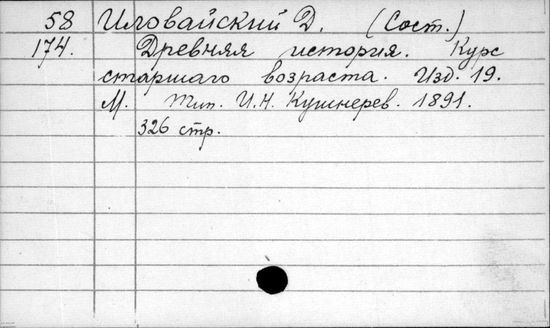 58 Иловайский Д. (Сост.)
174. Древняя история. Курс
старшаго возраста. Изд. 19.
М. Тип. И.Н. Кушнерев. 1891.
326 стр.